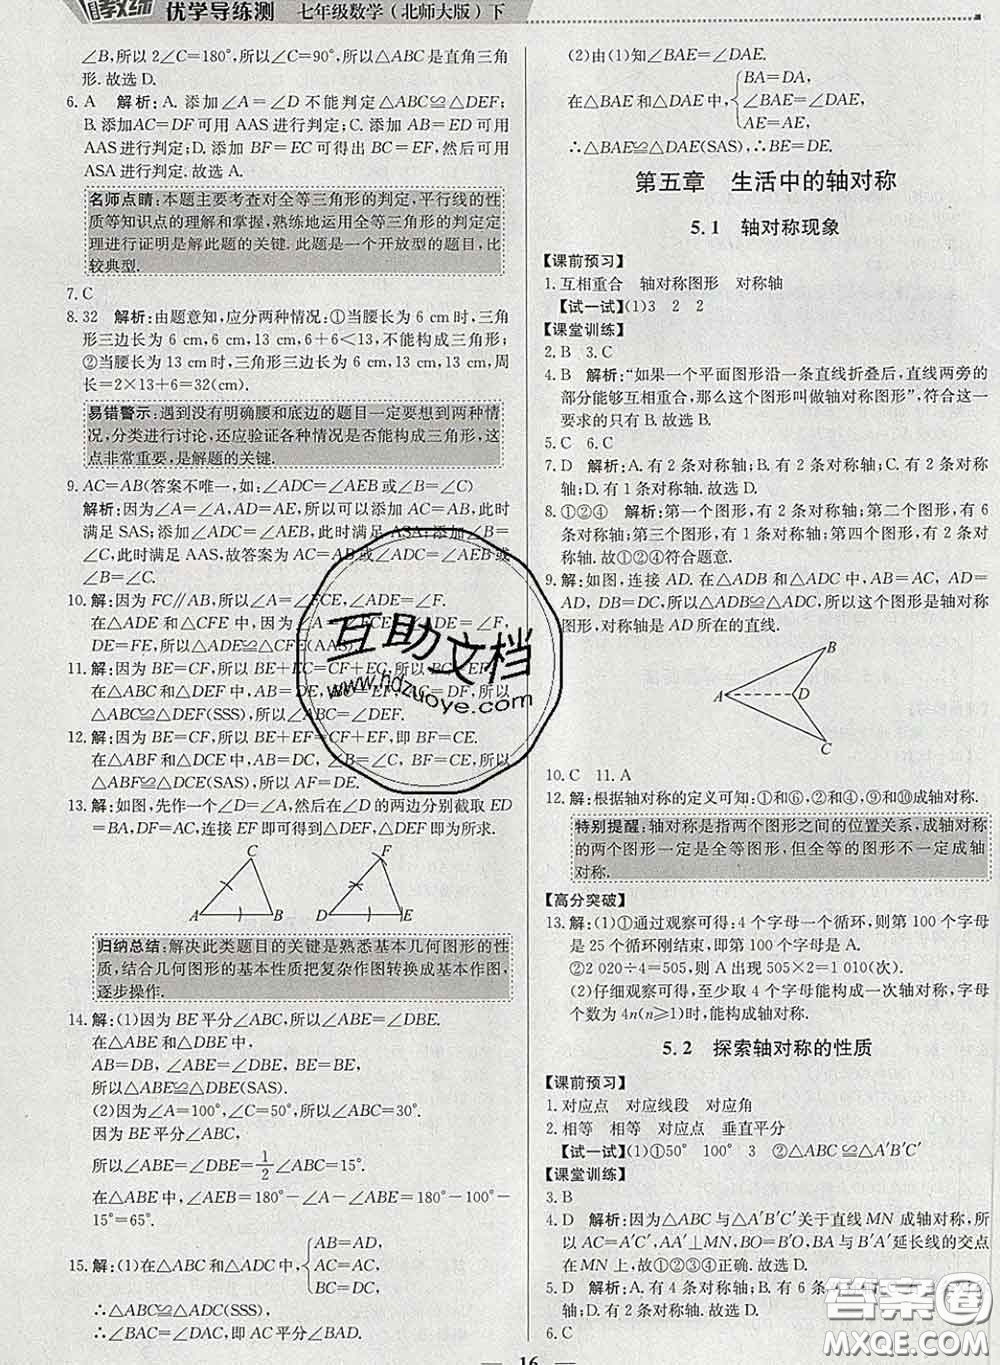 优学导练测 七年级数学(北师大版)下
∠B,所以2∠C=180°,所以∠C=90°,所以△ABC是直角三角
形.故选D.
6. A 解析:A.添加∠A=∠D不能判定△ABC≌△DEF;
B.添加AC=DF可用AAS进行判定;C.添加AB=ED可用
AAS进行判定;D.添加BF=EC可得出BC=EF,然后可用
ASA进行判定.故选A.
名师点睛:本题主要考查对全等三角形的判定,平行线的性
质等知识点的理解和掌握,熟练地运用全等三角形的判定定
理进行证明是解此题的关键.此题是一个开放型的题目,比
较典型.
7. C
8. 32 解析:由题意知,应分两种情况:①当腰长为6 cm时,三角
形三边长为6 cm,6 cm,13 cm,6+6<13,不能构成三角形;
②当腰长为13 cm时,三角形三边长为6 cm,13 cm,13 cm,周
长=2×13+6=32(cm).
易错警示:遇到没有明确腰和底边的题目一定要想到两种情
况,分类进行讨论,还应验证各种情况是否能构成三角形,这
点非常重要,是解题的关键.
9. AC=AB(答案不唯一,如:∠ADC=∠AEB或∠B=∠C)
解析:因为∠A=∠A,AD=AE,所以可以添加AC=AB,此时
满足SAS;添加∠ADC=∠AEB,此时满足ASA;添加∠B=
∠C,此时满足AAS,故答案为AC=AB或∠ADC=∠AEB或
∠B=∠C.
10. 解:因为FC∥AB,所以∠A=∠FCE,∠ADE=∠F.
在△ADE和△CFE中,因为∠A=∠FCE,∠ADE=∠F,
DE=FE,所以△ADE≌△CFE(AAS).
11. 解:因为BE=CF,所以BE+EC=CF+EC,所以BC=EF.
在△ABC和△DEF中,AB=DE,AC=DF,BC=EF,
所以△ABC≌△DEF(SSS),所以∠ACB=∠F.
12. 解:因为BE=CF,所以BE+EF=CF+EF,即BF=CE.
在△ABF和△DCE中,AB=DC,∠B=∠C,BF=CE,所以
△ABF≌△DCE(SAS),所以AF=DE.
13. 解:如图,先作一个∠D=∠A,然后在∠D的两边分别截取ED
=BA,DF=AC,连接EF即可得到△DEF,△DEF即为所求.
C F
A B D E
归纳总结:解决此类题目的关键是熟悉基本几何图形的性
质,结合几何图形的基本性质把复杂作图转换成基本作图,
逐步操作.
14. 解:(1)因为BE平分∠ABC,所以∠ABE=∠DBE.
在△ABE和△DBE中,
AB=DB,∠ABE=∠DBE,BE=BE,
所以△ABE≌△DBE(SAS).
(2)因为∠A=100°,∠C=50°,所以∠ABC=30°.
因为BE平分∠ABC,
所以∠ABE=∠DBE=1/2∠ABC=15°.
在△ABE中,∠AEB=180°-∠A-∠ABE=180°-100°-
15°=65°.
15. 解:(1)在△ABC和△ADC中,{AB=AD,
AC=AC,
BC=DC,
∴△ABC≌△ADC(SSS).
∴∠BAC=∠DAC,即AC平分∠BAD.
(2)由(1)知∠BAE=∠DAE.
在△BAE和△DAE中,{BA=DA,
∠BAE=∠DAE,
AE=AE,
∴△BAE≌△DAE(SAS),∴BE=DE.
第五章 生活中的轴对称
5.1 轴对称现象
【课前预习】
1. 互相重合 轴对称图形 对称轴
【试一试】(1)3 2 2
【课堂训练】
2. B 3. C
4. B 解析:“如果一个平面图形沿一条直线折叠后,直线两旁的
部分能够互相重合,那么这个图形叫做轴对称图形”,符合这一
要求的只有B.故选B.
5. C 6. C
7. D 解析:A.有2条对称轴;B.有2条对称轴;C.有2条对称
轴;D.有1条对称轴.故选D.
8. ①②④ 解析:第一个图形,有2条对称轴;第二个图形,有6
条对称轴;第三个图形,有1条对称轴;第四个图形,有2条对
称轴.故①②④符合题意.
9. 解:如图,连接AD.在△ADB和△ADC中,AB=AC,AD=
AD,DB=DC,所以△ADB≌△ADC,所以这个图形是轴对称
图形,对称轴是AD所在的直线.
B
A D
C
10. C 11. A
12. 解:根据轴对称的定义可知:①和⑥,②和④,⑨和⑩成轴对称.
特别提醒:轴对称是指两个图形之间的位置关系,成轴对称
的两个图形一定是全等图形,但全等的图形不一定成轴
对称.
【高分突破】
13. 解:(1)①通过观察可得:4个字母一个循环,则第100个字母
是25个循环刚结束,即第100个字母是A.
②2 020÷4=505,则A出现505×2=1 010(次).
(2)仔细观察可得,至少取4个字母能构成一次轴对称,字母
个数为4n(n≥1)时,能构成轴对称.
5.2 探索轴对称的性质
【课前预习】
1. 对应点 对应线段 对应角
2. 相等 相等 对应点 垂直平分
【试一试】(1)①50° 100° 3 ②△ABC≌△A′B′C′
【课堂训练】
3. B
4. D 解析:因为△ABC与△A′B′C′关于直线MN成轴对称,所
以AC=A′C′,AA′⊥MN,BO=B′O,BA与B′A′延长线的交点
在MN上,故①②③④正确.故选D.
5. D 解析:A.有4条对称轴;B.有6条
D.有2条对称轴.故选D.
6. C
16
互助文档
www.hdzuoye.com
答案圈
MXQE.COM